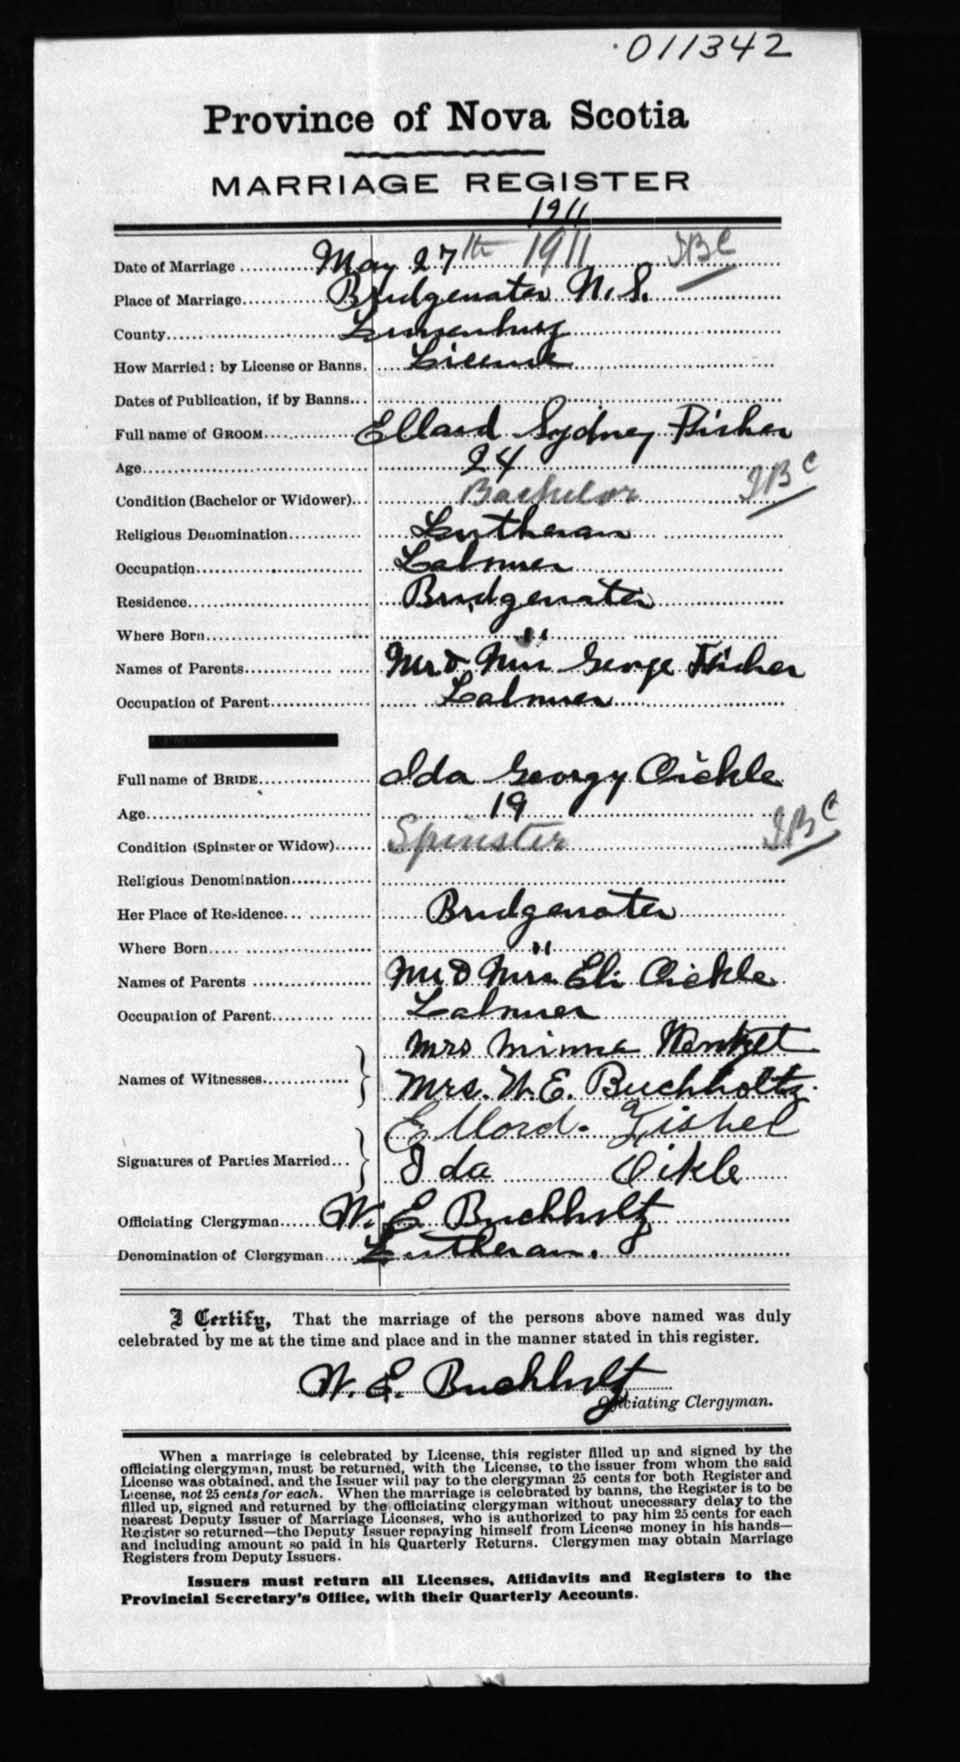 011342
Province of Nova Scotia
MARRIAGE REGISTER
1911
Date of Marriage ............ May 27th 1911 JBC
Place of Marriage............ Bridgewater N. S.
County............ Lunenburg
How Married: by License or Banns. License
Dates of Publication, if by Banns...
Full name of GROOM............ Ellard Sydney Fisher
Age............ 24
Condition (Bachelor or Widower)... Bachelor JBC
Religious Denomination............ Lutheran
Occupation............ Labourer
Residence............ Bridgewater
Where Born............ "
Names of Parents............ Mr & Mrs George Fisher
Occupation of Parent............ Labourer
Full name of BRIDE............ Ida Georgy Oickle
Age............ 19
Condition (Spinster or Widow)...... Spinster JBC
Religious Denomination............
Her Place of Residence............ Bridgewater
Where Born............ "
Names of Parents ............ Mr & Mrs. Eli Oickle
Occupation of Parent............ Labourer
Mrs Minna
Names of Witnesses............ Mrs. W. E. Buchholtz.
Ellord. Fisher
Signatures of Parties Married... Ida Oikle
Officiating Clergyman...... W. E. Buchholtz
Denomination of Clergyman.... Lutheran.
I Certify, That the marriage of the persons above named was duly
celebrated by me at the time and place and in the manner stated in this register.
W. E. Buchholtz
Officiating Clergyman.
When a marriage is celebrated by License, this register filled up and signed by the
officiating clergyman, must be returned, with the License, to the issuer from whom the said
License was obtained, and the Issuer will pay to the clergyman 25 cents for both Register and
License, not 25 cents for each. When the marriage is celebrated by banns, the Register is to be
filled up, signed and returned by the officiating clergyman without unnecessary delay to the
nearest Deputy Issuer of Marriage Licenses, who is authorized to pay him 25 cents for each
Register so returned—the Deputy Issuer repaying himself from License money in his hands—
and including amount so paid in his Quarterly Returns. Clergymen may obtain Marriage
Registers from Deputy Issuers.
Issuers must return all Licenses, Affidavits and Registers to the
Provincial Secretary's Office, with their Quarterly Accounts.